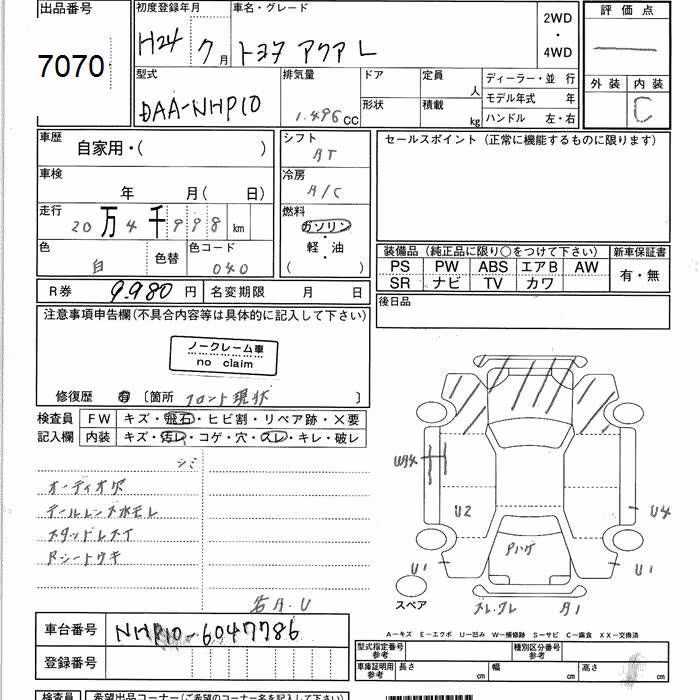 出品番号
7070
初度登録年月
H24 7月
車名・グレード
トヨタ アクア L
2WD
・
4WD
評価点
外装 内装
C
型式
DAA-NHP10
排気量
1.496cc
ドア
形状
定員
人
積載
kg
ディーラー・並行
モデル年式 年
ハンドル 左・右
車歴
自家用・( )
車検
年 月(日)
走行
20万4千998km
色
白
色替
色コード
040
シフト
AT
冷房
A/C
燃料
ガソリン
・
軽・油
( )
セールスポイント(正常に機能するものに限ります)
装備品(純正品に限り○をつけて下さい)
PS PW ABS エアB AW
SR ナビ TV カワ
新車保証書
有・無
後日品
R券 9,980円
名変期限 月 日
注意事項申告欄(不具合内容等は具体的に記入して下さい)
ノークレーム車
no claim
修復歴 有 〔箇所 フロント現状 〕
検査員
記入欄
FW キズ・飛石・ヒビ割・リペア跡・×要
内装 キズ・汚レ・コゲ・穴・スレ・キレ・破レ
シミ
オーディオ欠
テールレンズ水モレ
スタッドレスタイ
Rシートウキ
右A.U
W4
U2
U4
U1
U1
Pハゲ
ズレ.クレ
A1
スペア
A-キズ E-エクボ U-凹み W-補修跡 S-サビ C-腐食 XX-交換済
車台番号
NHP10-6047786
登録番号
型式指定番号
参考
種別区分番号
参考
車庫証明用
参考
長さ cm
幅 cm
高さ cm
検査員
希望出品コーナー(ご希望のコーナー名を記入して下さい)